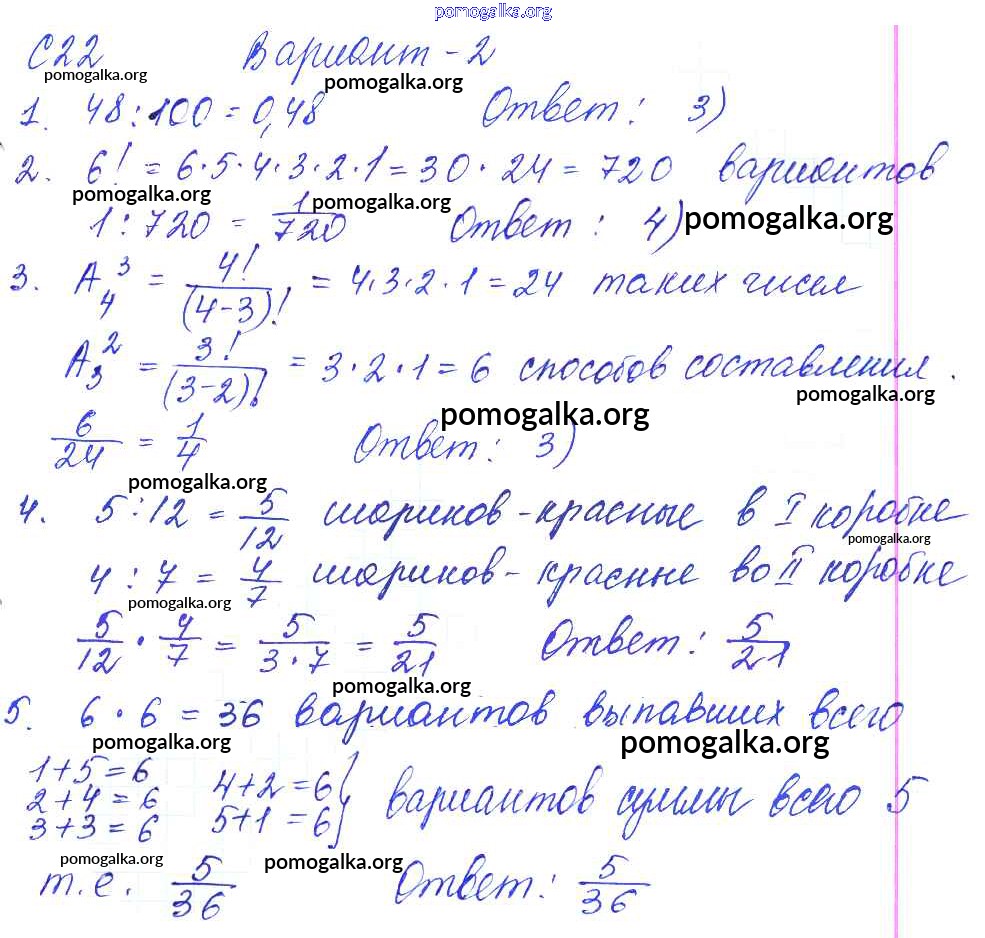 pomogalka.org
С22 Вариант - 2
pomogalka.org pomogalka.org
1. 48 : 100 = 0,48 Ответ: 3)
2. 6! = 6·5·4·3·2·1 = 30 · 24 = 720 вариантов
pomogalka.org pomogalka.org pomogalka.org
1 : 720 = 1/720 Ответ: 4)
3. A₄³ = 4!/(4-3)! = 4·3·2·1 = 24 таких чисел
A₃² = 3!/(3-2)! = 3·2·1 = 6 способов составления.
pomogalka.org pomogalka.org
6/24 = 1/4 Ответ: 3)
pomogalka.org
4. 5 : 12 = 5/12 шариков - красные в I коробке
pomogalka.org
4 : 7 = 4/7 шариков - красные во II коробке
pomogalka.org
5/12 · 4/7 = 5/3·7 = 5/21 Ответ: 5/21
pomogalka.org
5. 6 · 6 = 36 вариантов выпавших всего
pomogalka.org pomogalka.org
1+5=6
2+4=6 4+2=6
3+3=6 5+1=6 } вариантов суммы всего 5
pomogalka.org pomogalka.org
т.е. 5/36 Ответ: 5/36